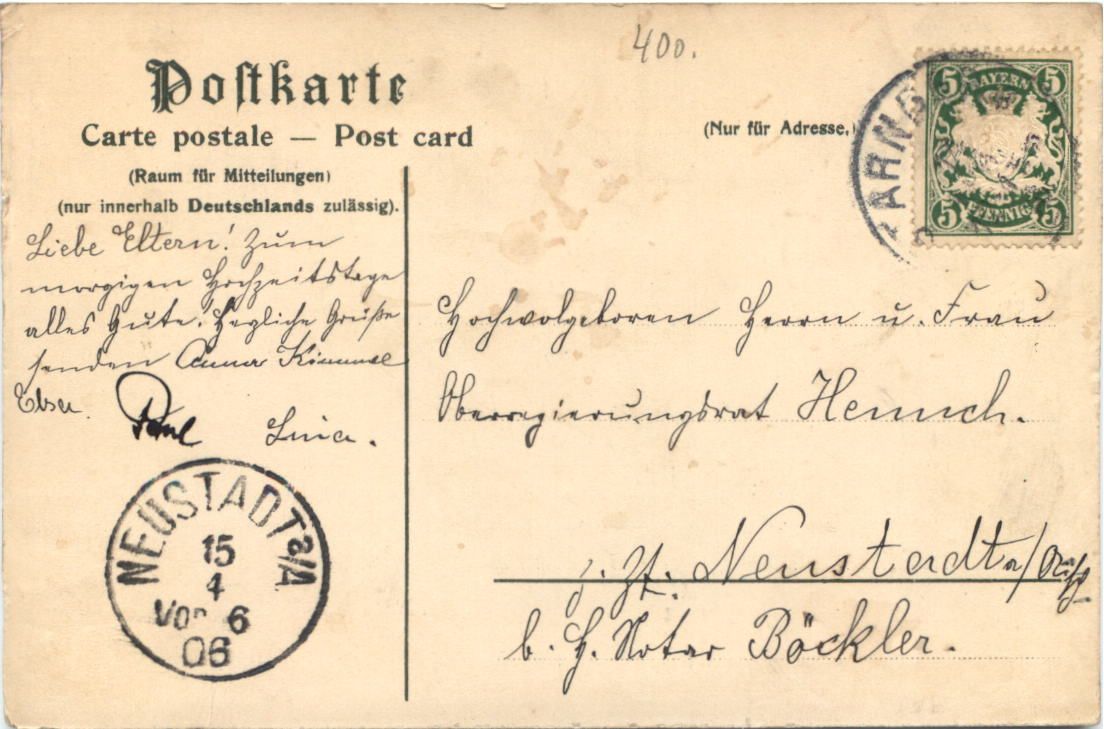 400.
Postkarte
Carte postale — Post card
(Nur für Adresse.)
(Raum für Mitteilungen)
(nur innerhalb Deutschlands zulässig).
5 BAYERN 5
5 PFENNIG 5
Liebe Eltern! Zum
morgigen Hochzeitstage
alles Gute! Herzliche Grüße
senden Anna Kimmel
Elsa.
Paul
Hochwolgeboren Herrn u. Frau
Oberregierungsrat Heinrich.
z. Zt. Neustadt a/
b. H. Notar Böckler.
NEUSTADT a/A.
15
4
Vor. 6
06